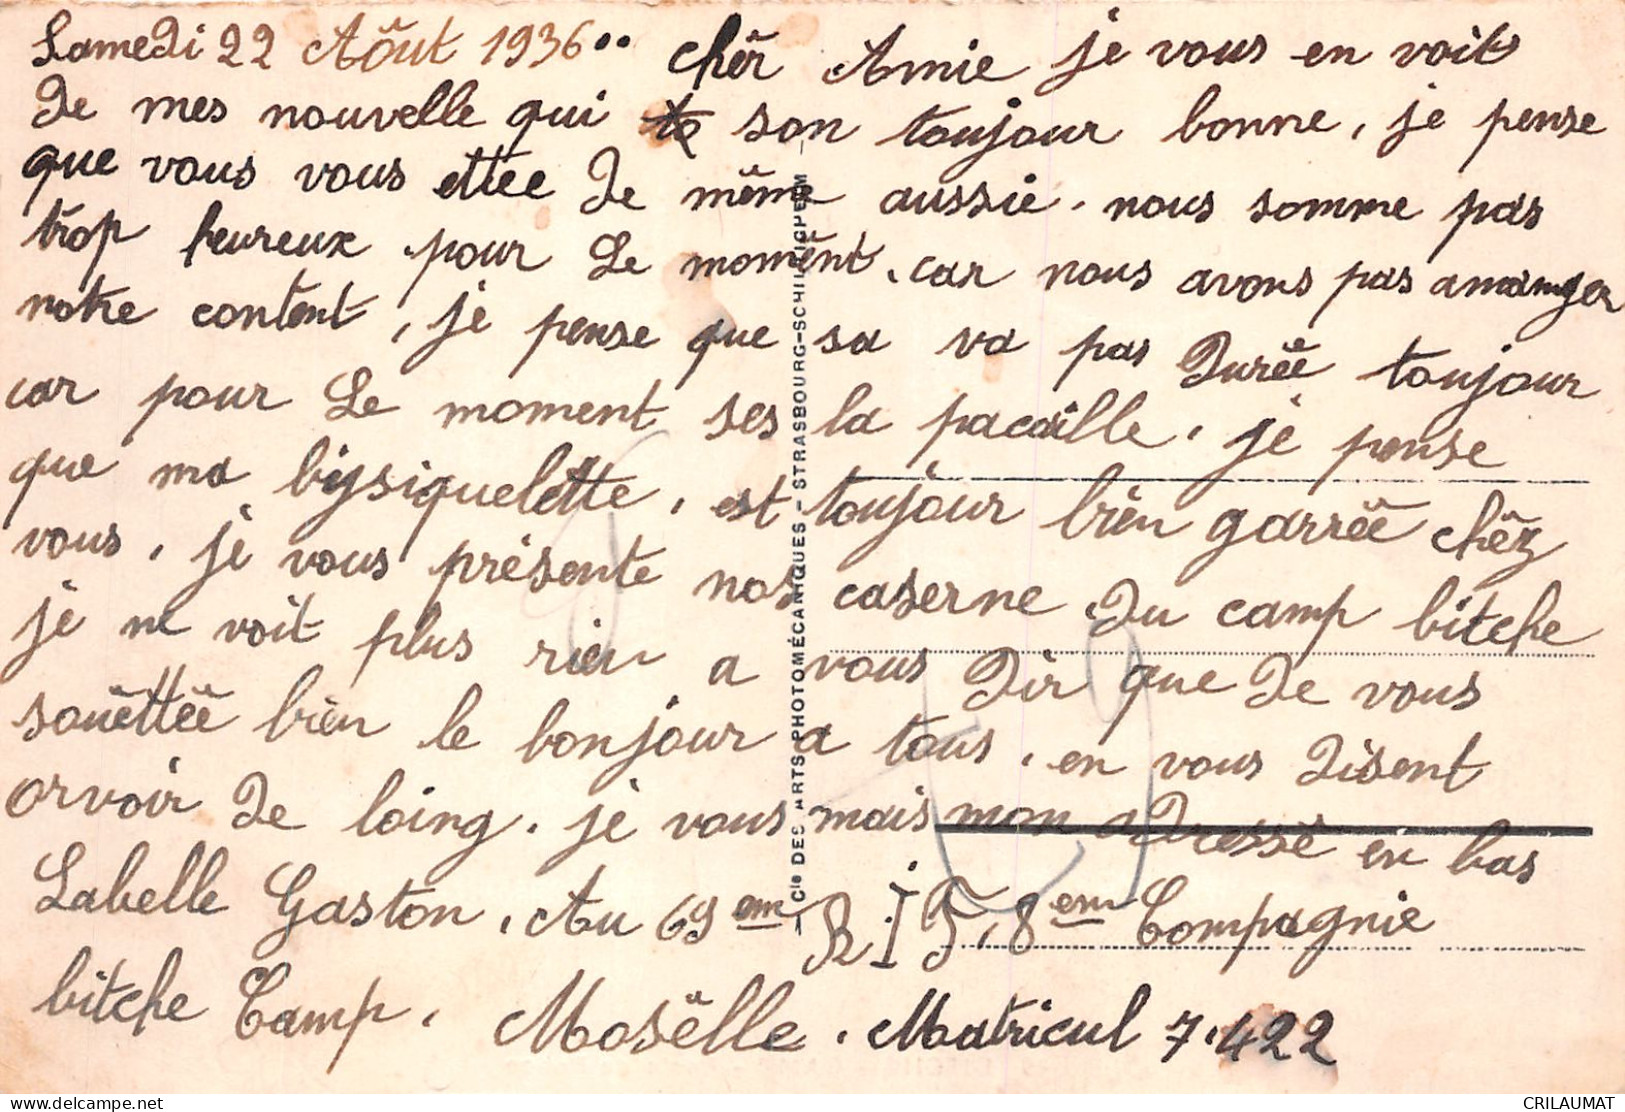 Samedi 22 Aôut 1936.. chër Amie je vous en voit
De mes nouvelle qui son toujour bonne, je pense
que vous vous ettee De mëme aussie. nous somme pas
trop heureux pour Le momënt. car nous avons pas amanger
notre content, je pense que sa va pas Durëe toujour
car pour Le moment ses la pacaille. je pense
que ma bysiquelette, est toujour bien garrëe chëz
vous. je vous présente nos caserne Du camp bitche
je ne voit plus rien a vous Dir que De vous
souëttëe bien le bonjour a tous. en vous Disent
orvoir De loing. je vous mais mon adresse en bas
Labelle Gaston. Au 69em R.I.F, 8em Compagnie
bitche Camp. Mosëlle. Matricul 7.422
Cie DES ARTS PHOTOMÉCANIQUES - STRASBOURG-SCHILTIGHEIM
CRILAUMAT